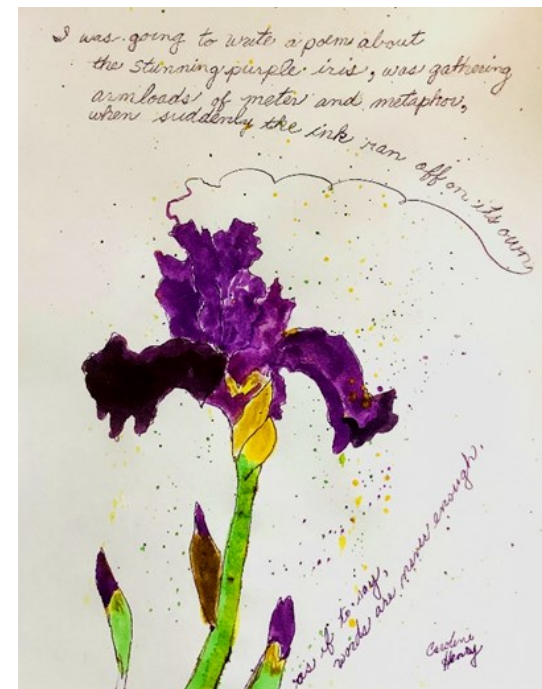 I was going to write a poem about
the stunning purple iris, was gathering
armloads of meter and metaphor,
when suddenly the ink ran off on its own,
as if to say,
words are never enough.
Caroline
Henry